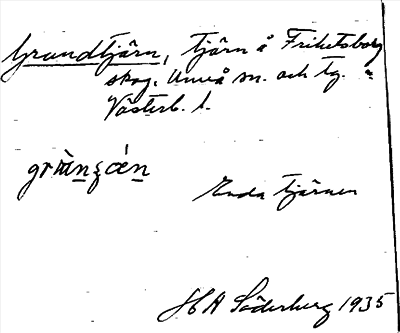 Grundtjärn, tjärn å Frihetsborg
skog, Umeå sn. och tg.
Västerb. l.
Enda tjärnen
HA Söderberg 1935